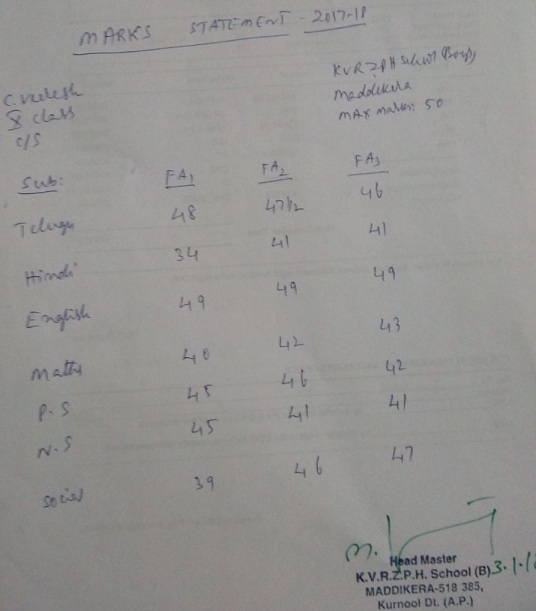 MARKS STATEMENT - 2017-18
K.V.R Z.P.H School (Boys)
Maddikera
MAX marks: 50
X class
C/S
Sub: FA1 FA2 FA3
Telugu 48 47 1/2 46
Hindi 34 41 41
English 49 49 49
Maths 40 42 43
P.S 45 46 42
N.S 45 41 41
Social 39 46 47
Head Master
K.V.R.Z.P.H. School (B)
MADDIKERA-518 385,
Kurnool Dt. (A.P.)